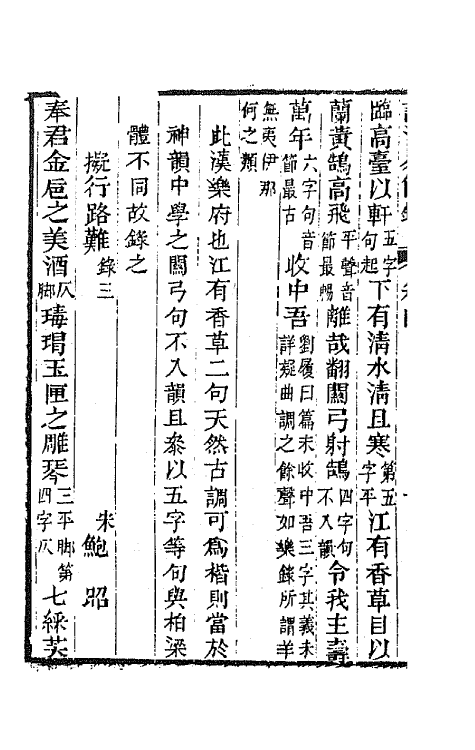 臨高臺以軒五字句起下有清水清且寒第五字平江有香草目以
蘭黃鵠高飛平聲音節最暢離哉翻關弓射鵠四字句不入韻令我主壽
萬年六字句音節最古收中吾劉履曰篇末收中吾三字其義未詳疑曲調之餘聲如樂錄所謂羊
無夷伊那何之類
此漢樂府也江有香草二句天然古調可為楷則當於
神韻中學之關弓句不入韻且叅以五字等句與柏梁
體不同故錄之
擬行路難錄三
宋鮑照
奉君金巵之美酒仄脚瑇瑁玉匣之雕琴三平脚第四字仄七綵芙